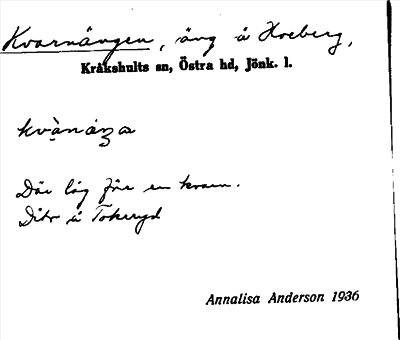 Kvarnängen, äng å Hoeberg,
Kråkshults sn, Östra hd, Jönk. l.
kvànáŋa
Där låg förr en kvarn.
Dito å Tokeryd
Annalisa Anderson 1936